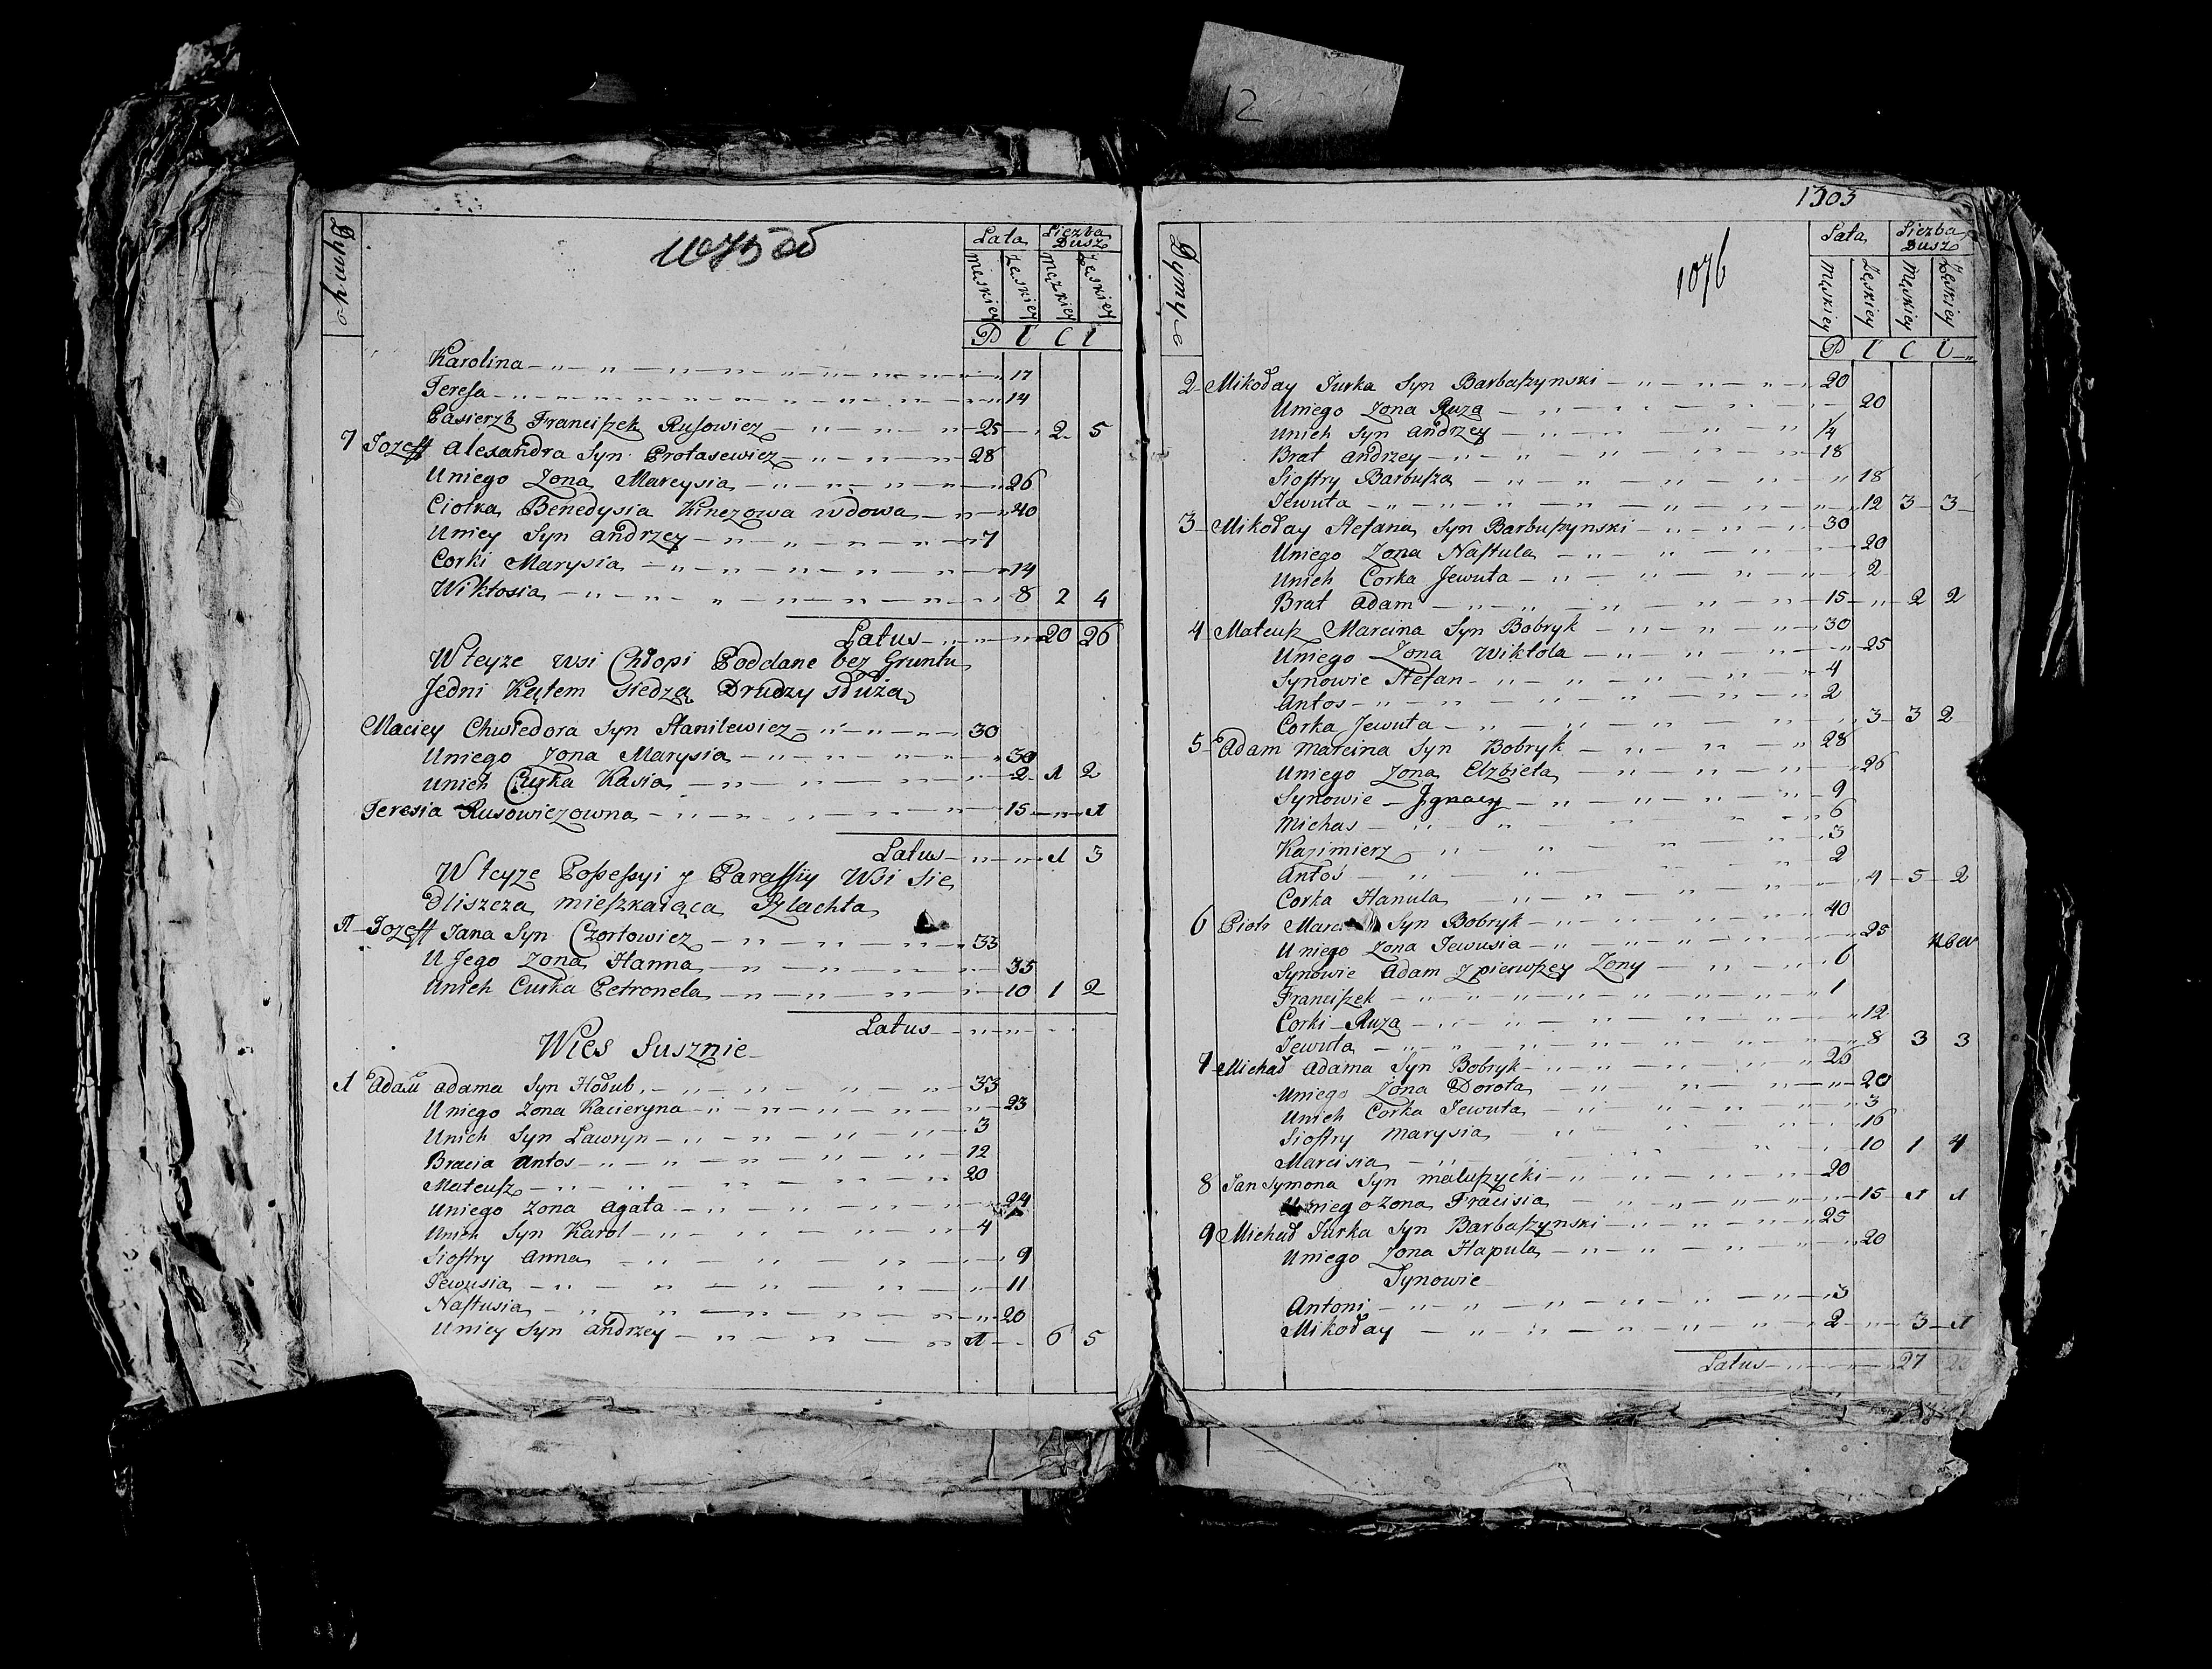 12
Dymy
1075 об
Lata Liczba Dusz
Męskiey Żeskiey Męzkiey Żeskiey
Karolina 17
Teresa 14
Pasierzb Franciszek Rusowicz 25 2 5
7 Jozeff Alesandra Syn Protasewicz 28
Uniego Zona Marcysia 26
Ciotka Benedysia Kinezowa wdowa 40
Uniey Syn Andrzey 7
Corki Marysia 14
Wiktosia 8 2 4
Latus 20 26
W teyze wsi Chłopi Poddane bez Gruntu
Jedni Kątem siedzą Drudzy służą
Maciey Chwiedora Syn Stanilewicz 30
Uniego Zona Marysia 30
Unich Curka Kasia 2 1 2
Teresia Rusowiczowna 15 1
Latus 1 3
W teyze Possessyi y Paraffiy Wsi Sie
dliszcza mieszkaiąca Szlachta
1 Jozeff Jana Syn Czortowicz 33
U Jego Zona Hanna 35
Unich Curka Petronela 10 1 2
Latus
Wies Susznie
1 Adam Adama Syn Hołub 33
Uniego Zona Kacieryna 23
Unich Syn Lawryn 3
Bracia Antos 12
Mateusz 20
Uniego Zona Agata 24
Unich Syn Karol 4
Siostry Anna 9
Jewusia 11
Nastusia 20
Uniey Syn Andrzey 1 6 5
1303
Dymy
1076
Lata Liczba Dusz
Męskiey Żeskiey Męskiey Żeskiey
2 Mikołay Jurka Syn Barbaszynski 20
Uniego Zona Ruza 20
Unich Syn Andrzey 1/4
Brat Andrzey 18
Siostry Barbusza 18
Jewuta 12 3 3
3 Mikołay Stefana Syn Barbuszynski 30
Uniego Zona Nastula 20
Unich Corka Jewuta 2
Brat Adam 15 2 2
4 Mateusz Marcina Syn Bobryk 30
Uniego Zona Wiktola 25
Synowie Stefan 4
Antos 2
Corka Jewuta 3 3 2
5 Adam Marcina Syn Bobryk 28
Uniego Zona Elzbieta 26
Synowie Jgnacy 9
Michas 6
Kazimierz 3
Antoś 2
Corka Hanula 4 5 2
6 Piotr Syn Bobryk 40
Uniego Zona Jewusia 25
Synowie Adam z pierwszey Zony 6
Franciszek 1
Corki Ruza 12
Jewuta 8 3 3
7 Michał Adama Syn Bobryk 26
Uniego Zona Dorota 20
Unich Corka Jewuta 3
Siostry Marysia 16
Marcisia 10 1 4
8 Jan Symona Syn Maluszycki 20
Uniego Zona Fracisia 15 1 1
9 Michał Jurka Syn Barbaszynski 25
Uniego Zona Hapula 20
Synowie
Antoni 3
Mikołay 2 3 1
Latus 27